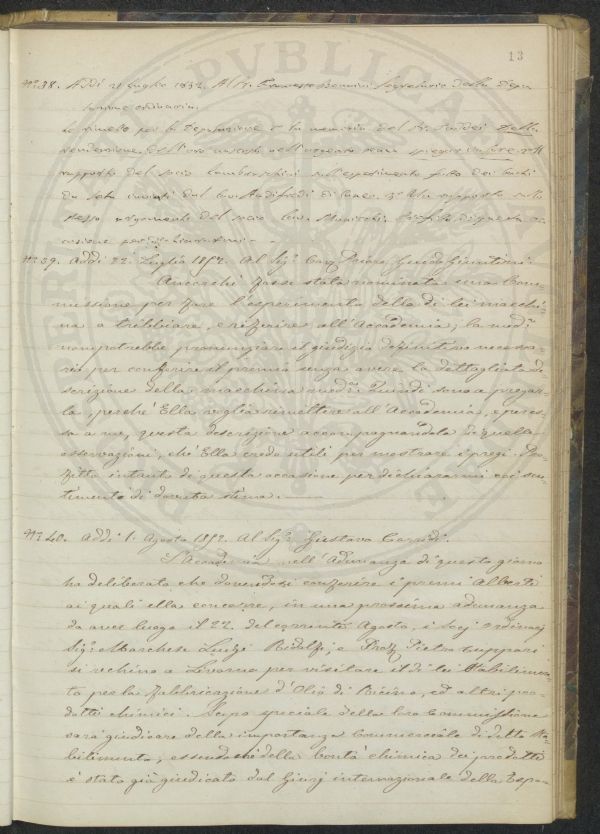 13
N° 38. Addì 21 Luglio 1852. Al Sr. Segretario della Depu
tazione ordinaria.
Le rimetto per la Deputazione la memoria del Sr.
rapporto del socio Lambruschini sull'esperimento fatto dei bachi
da seta inviati dal di rapporto sullo
stesso argomento del socio
N° 39. Addì 22 Luglio 1852. Al Sigr. Guido Giuntini.
Ancorchè fosse stata nominata una Com
missione per fare l'esperimento della di lei macchi
na a trebbiare, e riferire all'Accademia, la med.a
non potrebbe pronunziare il giudizio definitivo necessa
rio per conferire il premio senza avere la dettagliata de
scrizione della macchina med.a Quindi sono a pregar
la, perchè Ella voglia rimettere all'Accademia, e per es
sa a me, questa descrizione accompagnandola di quelle
osservazioni, che Ella creda utili per mostrare i pregi. Pro
fitto intanto di questa occasione per dichiararmi coi sen
timenti di dovuta stima.
N° 40. Addì 1. Agosto 1852. Al Sigr. Gustavo Corridi.
L'Accademia nell'Adunanza di questo giorno
ha deliberato che dovendosi conferire i premi Alberti
ai quali ella concorre, in una prossima adunanza
da aver luogo il 22 del corrente Agosto, i Socj ordinarj
Sigr. Marchese Luigi Ridolfi, e Prof. Pietro Cuppari
si rechino a Livorno per visitare il di lei Stabilimen
to per la fabbricazione d'Olio di Ricino, ed altri pro
dotti chimici. Scopo speciale della loro Commissione
sarà giudicare della importanza Commerciale di detto Sta
bilimento, essendochè della bontà chimica dei prodotti
è stato già giudicato dal Giurj internazionale della Espo